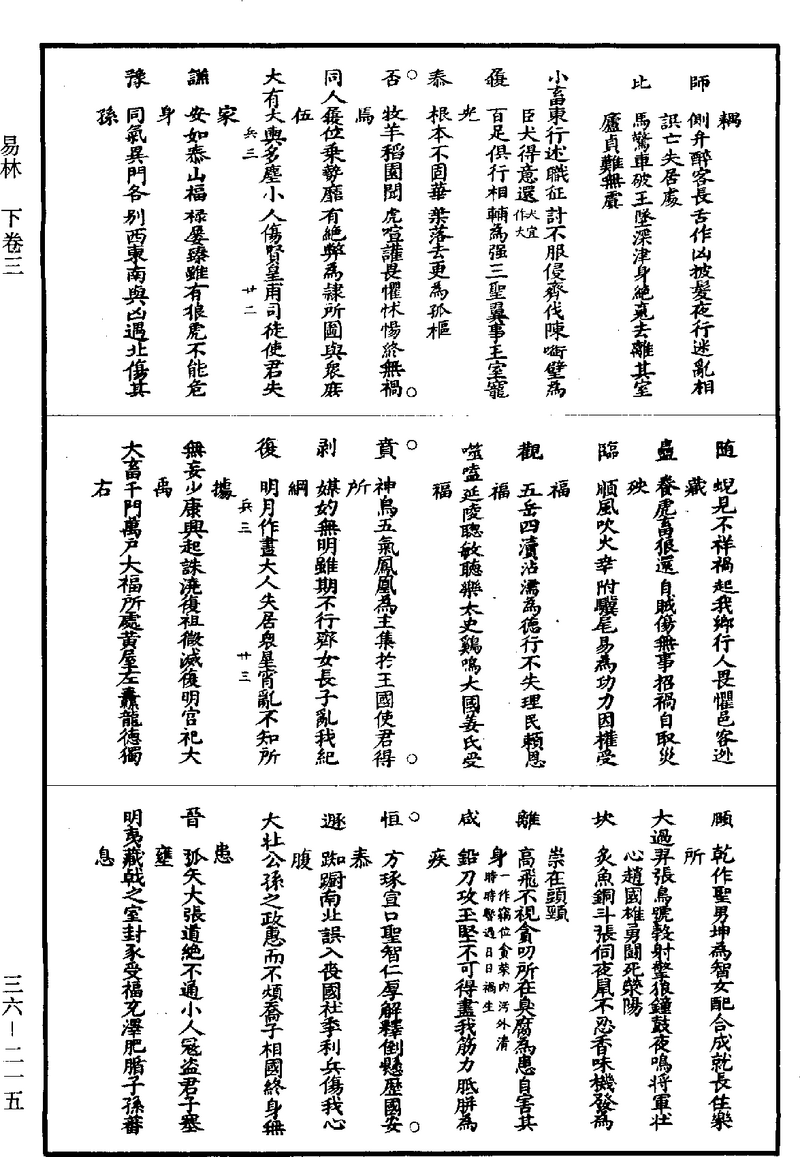 易林　下卷三
三六－二一一五
耦
師　側弁醉客長舌作凶披髮夜行迷亂相
誤亡失居處
比　馬驚車破王墜深津身絶䰟去離其室
廬貞難無慮
小畜東行述職征討不服侵齊伐陳衘璧為
臣犬得意還犬宜作大
履　百足俱行相輔為强三聖翼事王室寵
光
泰　根本不固華葉落去更為孤樞
否　牧羊稻園聞虎喧讙畏懼怵惕終無禍
焉
同人履位乗勢靡有絶弊為隷所圖與衆庶
伍
大有大輿多塵小人傷賢皇甫司徒使君失
兵三　廿二
家
謙　安如泰山福禄屢臻雖有狼虎不能危
身
豫　同氣異門各别西東南與凶遇北傷其
孫
随　蜺見不祥禍起我鄉行人畏懼邑客逊
藏
蠱　養虎畜狼還自賊傷無事招禍自取災
殃
臨　順風吹火幸附驥尾易為功力因權受
福
觀　五岳四瀆沾濡為德行不失理民賴恩
福
噬嗑延陵聰敏聽樂太史鷄鳴大國姜氏受
福
賁　神鳥五氣鳳凰為主集於王國使君得
所
剥　媒妁無明雖期不行齊女長子亂我紀
綱
復　明月作晝大人失居衆星宵亂不知所
兵三　廿三
據
無妄少康興起誅澆復祖微滅復明官祀大
禹
大畜千門萬戸大福所處黄屋左纛龍德獨
右
頤　乾作聖男坤為智女配合成就長住樂
所
大過羿張烏號彀射驚狼鐘鼓夜鳴將軍壮
心趙國雄勇鬬死滎陽
坎　炙魚銅斗張伺夜鼠不忍香味機發為
祟在頭頸
離　高飛不視貪叨所在臭腐為患自害其
身一作竊位貪榮内汚外清時時豎過日日禍生
咸　鉛刀攻玉堅不可得盡我筋力胝胼為
疾
恒　方琢宣口聖智仁厚解釋倒懸歴國安
泰
遯　踟蹰南北誤入喪國杜季利兵傷我心
腹
大壮公孫之政惠而不煩喬子相國終身無
患
晉　弧矢大張道絶不通小人冦盗君子塞
壅
明夷藏戟之室封豕受福充澤肥腯子孫蕃
息